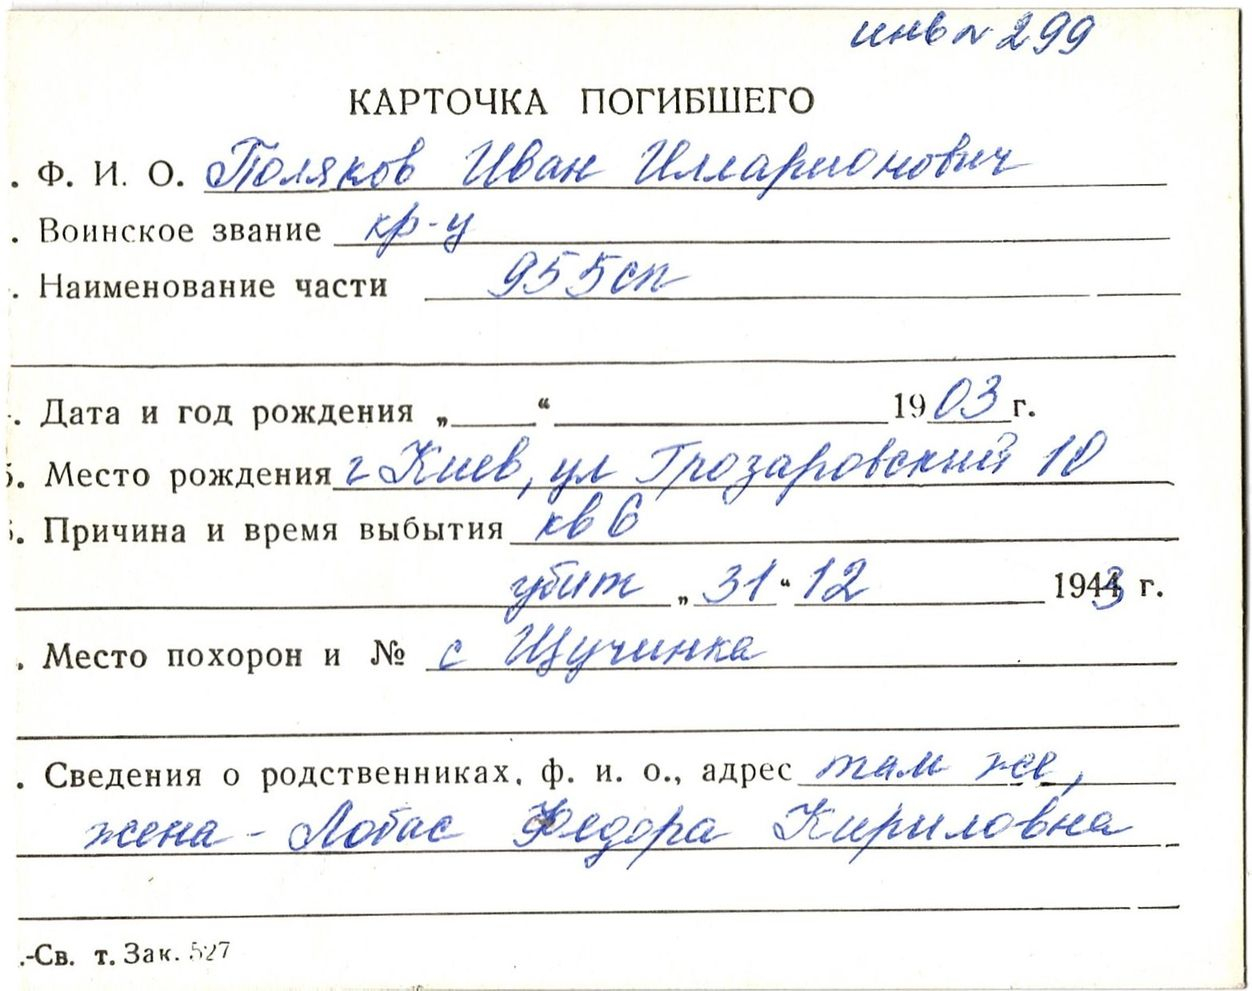 инв № 299
КАРТОЧКА ПОГИБШЕГО
. Ф. И. О. Поляков Иван Илларионович
. Воинское звание кр-ц
. Наименование части 955сп
. Дата и год рождения „ “ 1903 г.
5. Место рождения г Киев, ул Грозаровский 10
6. Причина и время выбытия кв 6
убит „ 31 “ 12 1943 г.
. Место похорон и № с Щучинка
. Сведения о родственниках, ф. и. о., адрес там же,
жена - Лобас Федора Кириловна
.-Св. т. Зак. 527